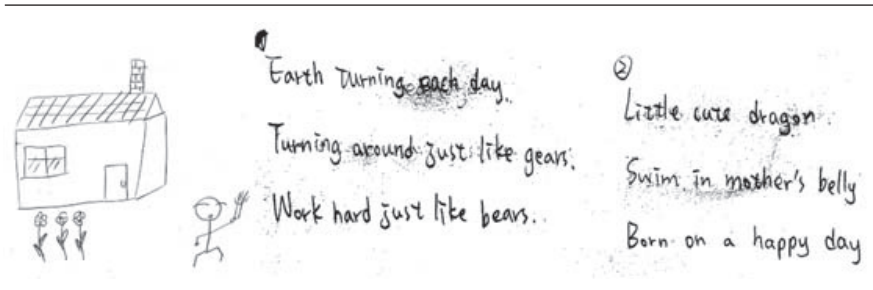 ①
Earth Turning each day.
Turning around just like gears.
Work hard just like bears.
②
Little cute dragon.
Swim in mother's belly
Born on a happy day